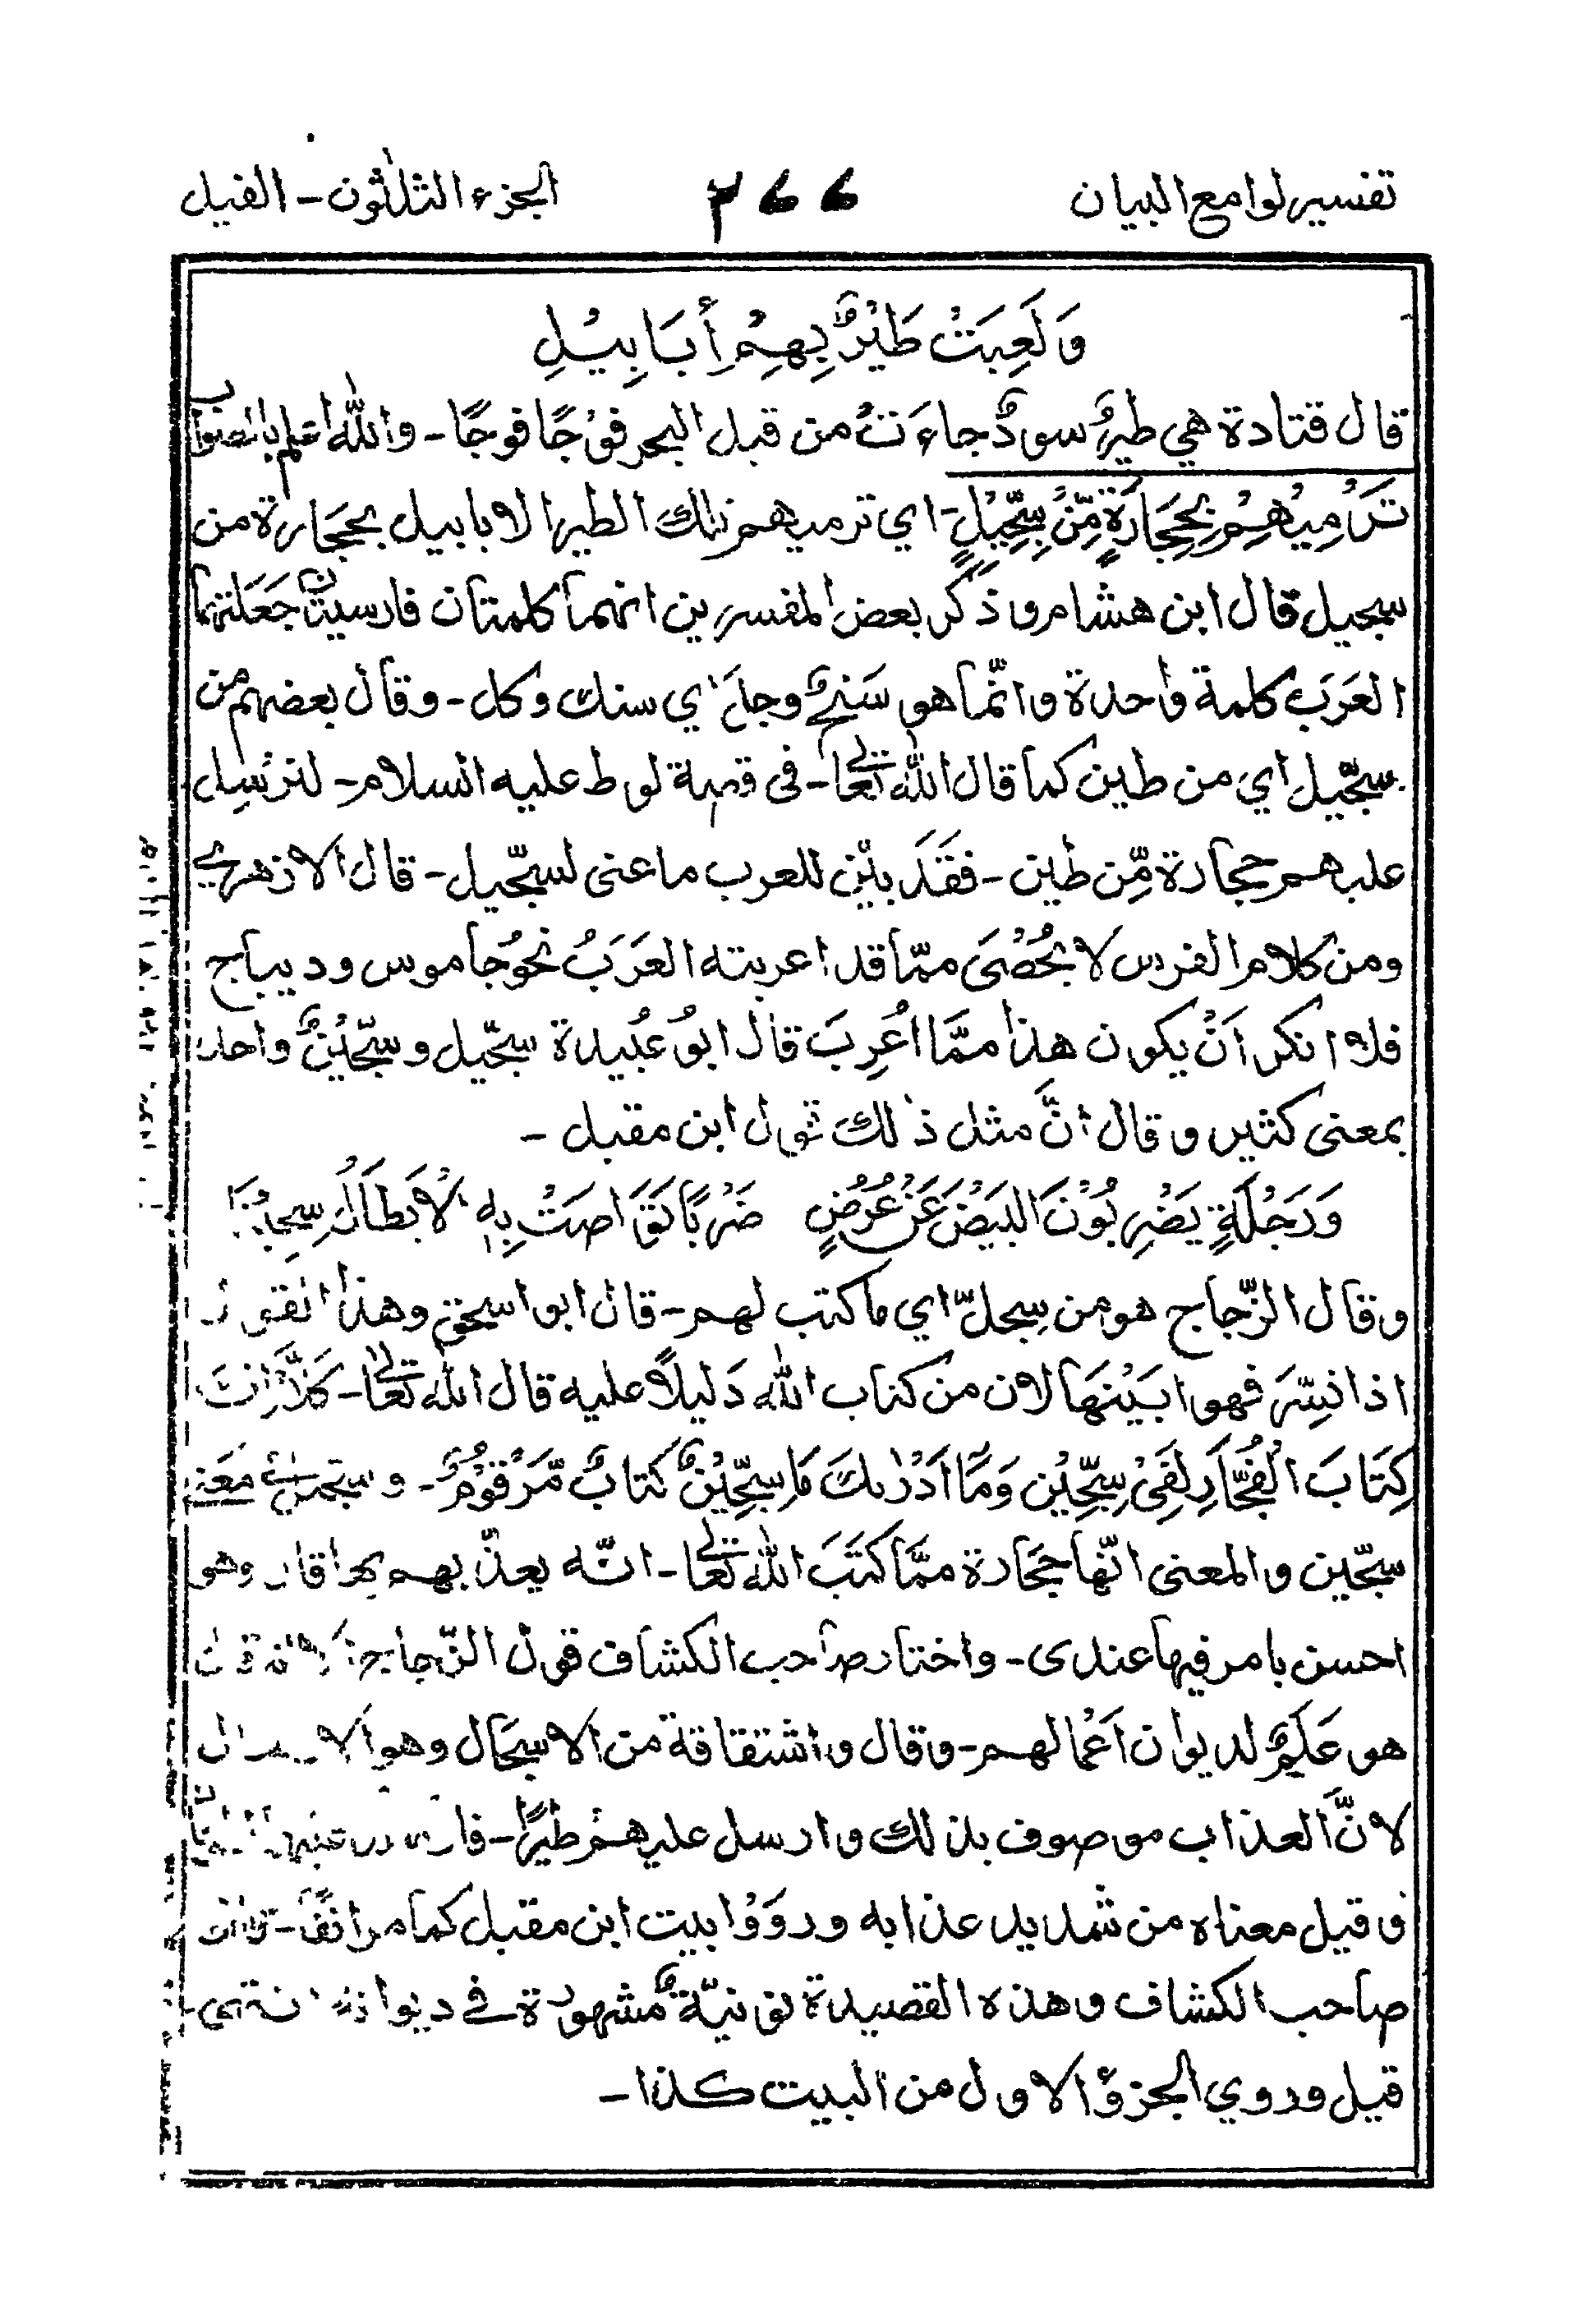 تفسير لوامع البيان ٢٦٦ الجزء الثلثون - الفيل
وَلَعِبَتْ طَيْرٌ بِهِمْ أَبَابِيْلِ
قال قتادة هي طيرٌ سودٌ جاءَتْ من قبل البحر فوْجًا فوجًا - والله اعلم بالصواب
تَرْمِيْهِمْ بِحِجَارَةٍ مِّنْ سِجِّيْلٍ - اي ترميهم تلك الطير الابابيل بحجَارة من
سجيل قال ابن هشام وذكر بعض المفسرين انهما كلمتان فارسيتان جَعَلتهما
العَرَب كلمة واحدة وانّما هو سَنْجٌ وجلٌ اي سنك وكل - وقال بعضهم من
سجّيل اي من طين كما قال الله تعالى - في قصة لوط عليه السلام - لنرْسِل
عليهم حجارة مِّن طين - فقَدَ بيّن للعرب ما عنى لسجّيل - قال الازهري
ومن كلام الفرس لا يُحْصَى ممّا قد اعربته العَرَبُ نحوُ جاموس وديباج
فلا انكر اَنْ يكون هذا ممَّا اُعْرِبَ قال ابوُ عبُيدة سجّيل وسجّيْنٌ واحد
بمعنى كثير وقال انَّ مثل ذلك قول ابن مقبل -
وَرَجْلَةٍ يَضْرِبُوْنَ البَيْضَ عَنْ عُرُضٍ ضَرْبًا تَوَاصَتْ بِهِ الْاَبْطَالُ سِجِّيْنَا
وقال الزّجاج هو من سِجلّ اي ما كتب لهم - قال ابو اسحق وهذا القول
اذا فسِّرَ فهو ابَيْنهَا لان من كتاب الله دَليلًا عليه قال الله تعالى - كَلَّا اِنَّ
كِتَابَ الْفُجَّارِ لَفِيْ سِجِّيْن وَمَا اَدْرٰىكَ مَا سِجِّيْنٌ كتابٌ مَّرْقُوْمٌ - و معنى
سجّين والمعنى انّها حجَارة ممَّا كتَبَ الله تعالى - انّه يعذّبهم بها قال وهو
احسن ما مر فيها عندى - واختار صاحب الكشاف قول الزّجاج
هو عَلَمٌ لديوان اَعْمالهم - وقال واشتقاقة من الاسجَال وهو الارسال
لانَّ العذاب موصوف بذلك وارسل عليهمْ طيرًا -
وقيل معناه من شديد عذابه وروَوْا بيت ابن مقبل كما مر انفًا - قال
صاحب الكشاف وهذه القصيدة نونيّةٌ مشهورة في ديوانه انتهى -
قيل وروي الجزؤ الاول من البيت كذا -